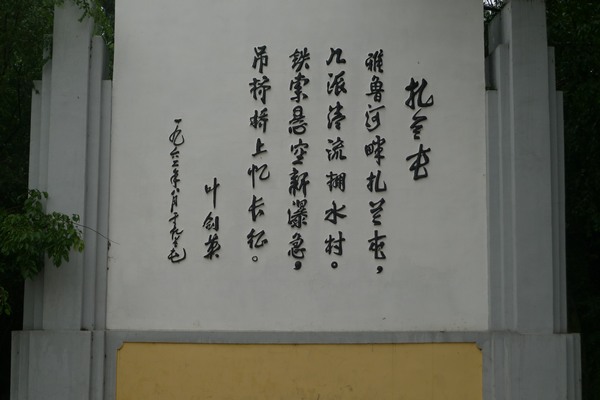 扎兰屯
雅鲁河畔扎兰屯,
几派清流拥水村。
铁索悬空新瀑急,
吊桥桥上忆长征。
叶剑英
一九六 年八月十九